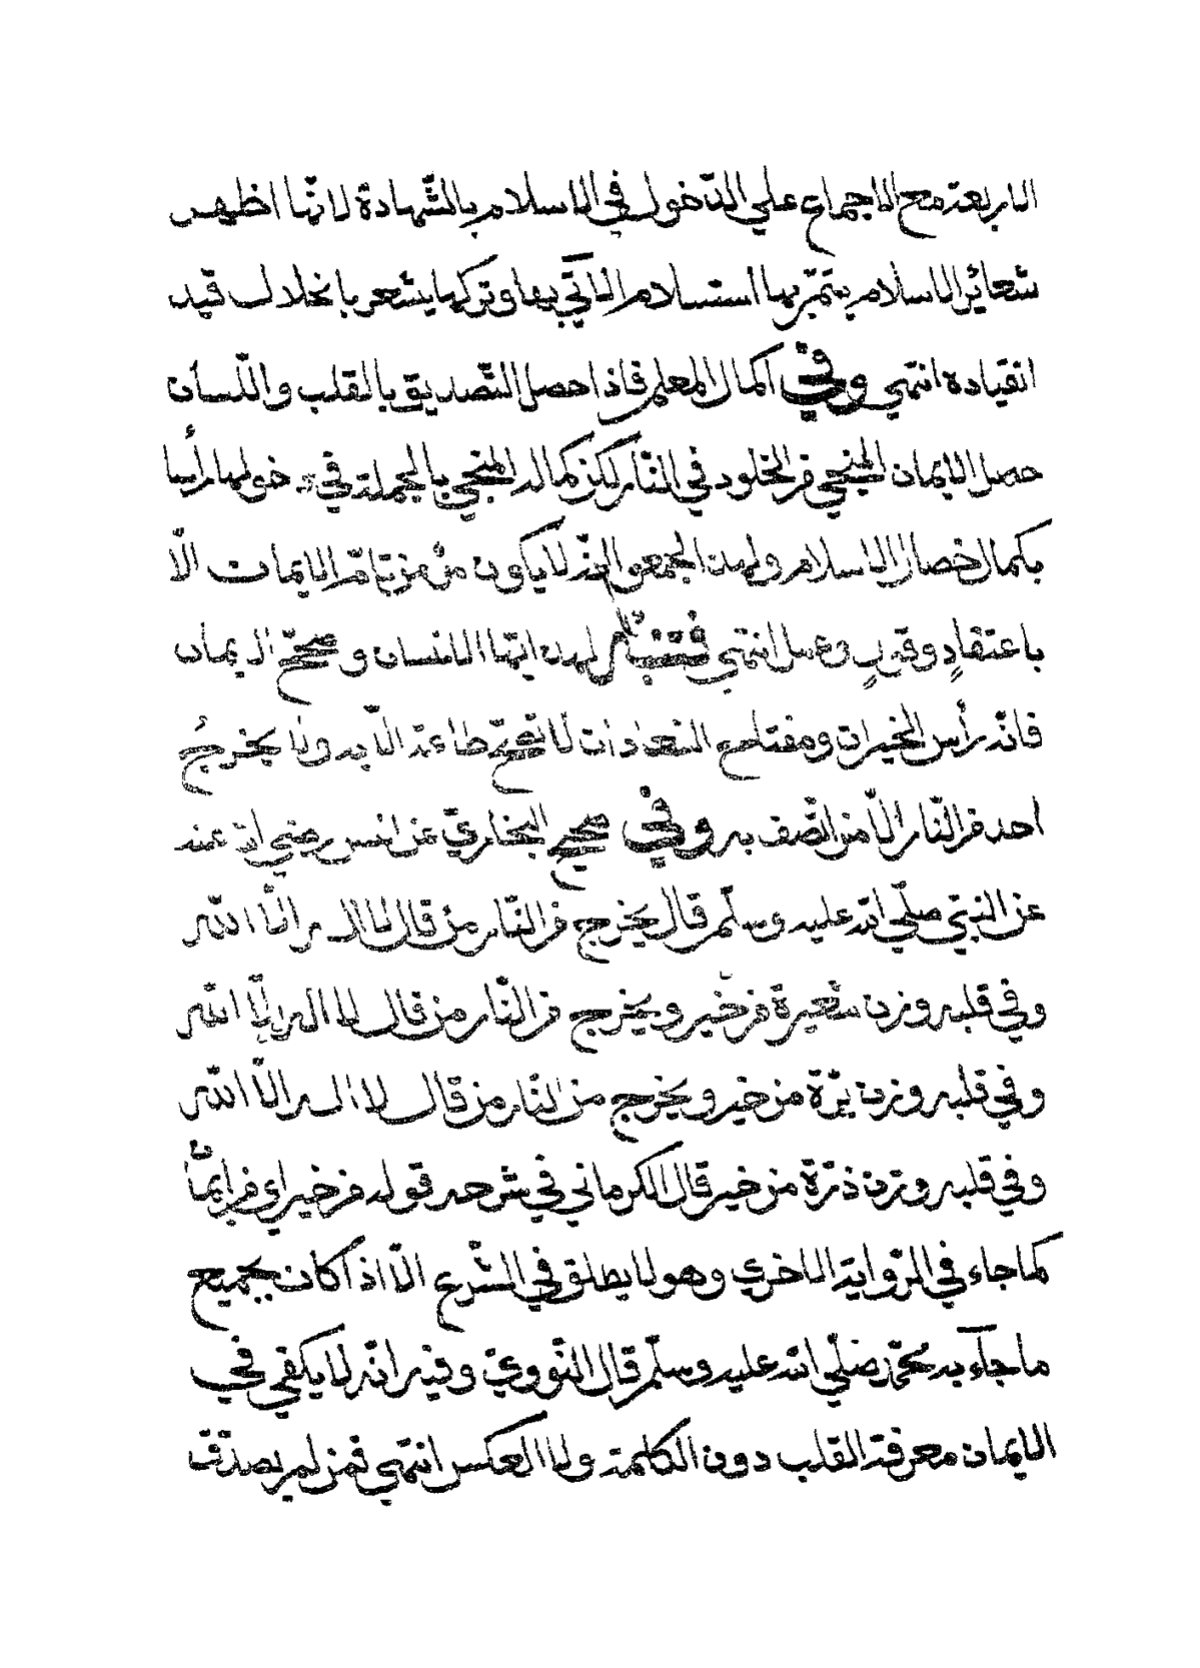 الاربعة مع الاجماع علي الدّخول في الاسلام بالشّهادة لانّها اظهر
شعائر الاسلام يتميّز بها استسلام الآتي بها وتركها يشعر بانحلال قيد
انقياده انتهي وفي اكمال المعلم فاذا حصل التّصديق بالقلب واللّسان
حصل الايمان المنجي من الخلود في النّار لكن كماله المنجي بالجملة في دخولها رأسا
بكمال خصال الاسلام ولهذا اجمعوا انّه لا يكون مؤمن تامّ الايمان الّا
باعتقادٍ وقولٍ وعمل انتهي لهذا ايّها الانسان وصحّح الايمان
فانّه رأس الخيرات ومفتاح السّعادات لا تصحّ طاعة الّا به ولا يخرجُ
احد من النّار الّا من اتّصف به وفي صحيح البخاريّ عن انس رضي الله عنه
عن النبيّ صلّي الله عليه وسلّم قال يخرج من النّار من قال لا اله الّا اللّه
وفي قلبه وزن شعيرة من خير ويخرج من النّار من قال لا اله الّا اللّه
وفي قلبه وزن برّة من خير ويخرج من النّار من قال لا اله الّا اللّه
وفي قلبه وزن ذرّة من خير قال الكرماني في شرحه قوله من خير اي من ايمان
كما جاء في الرّواية الاخري وهو لا يطلق في الشّرع الّا اذا كان بجميع
ما جآء به محمّد صلّي الله عليه وسلّم قال النّوويّ وفيه انّه لا يكفي في
الايمان معرفة القلب دون الكلمة ولا العكس انتهي فمن لم يصدّق